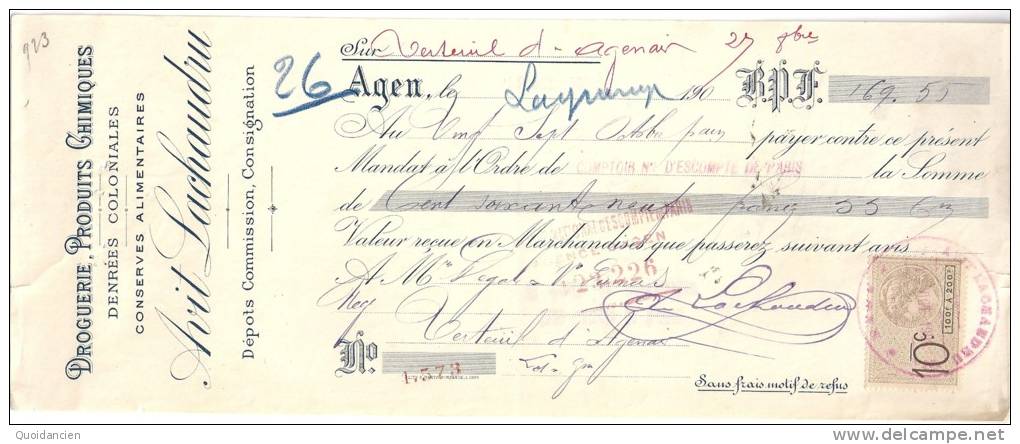 923
DROGUERIE, PRODUITS CHIMIQUES
DENRÉES COLONIALES
CONSERVES ALIMENTAIRES
Avit Lachaudru
Dépots Commission, Consignation
26
Sur Verteuil d'Agenais 27 8bre
Agen, le 190 B.P.F. 169.55
Au Vingt Sept Octobre payer contre ce présent
Mandat à l'Ordre de COMPTOIR NAL D'ESCOMPTE DE PARIS la Somme
de Cent Soixante neuf francs 55 Cm
Valeur reçue en Marchandises que passerez suivant avis
AGEN
22226
A Mr
Verteuil d'Agenais
Lot-Gne
A. Lachaudru
No 1573
Sans frais motif de refus
100F A 200F
10c
LACHAUDRU
Quoidancien
delcampe.net